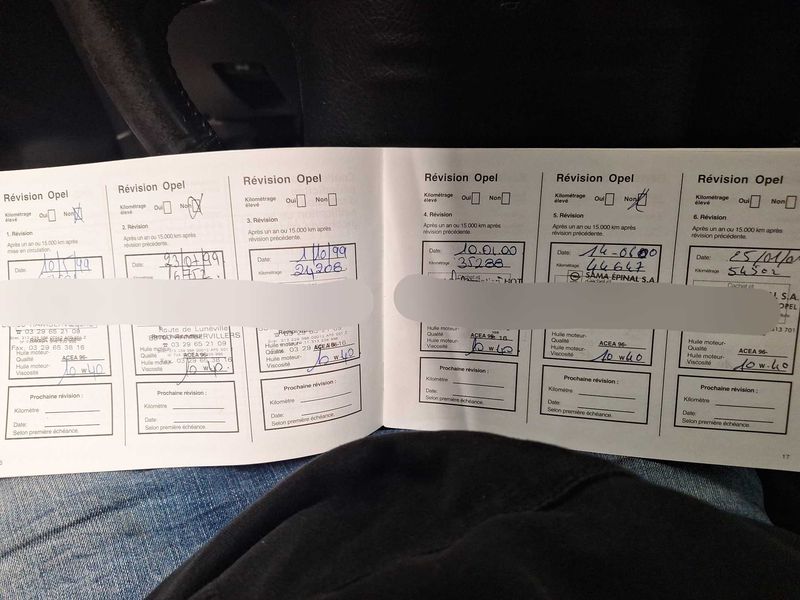 Révision Opel
Kilométrage élevé Oui Non
1. Révision
Après un an ou 15.000 km après mise en circulation.
03 29 65 21 09
Fax. 03 29 65 38 16
Huile moteur-
Qualité ACEA 96-
Huile moteur-
Viscosité 10 W 40
Prochaine révision :
Kilomètre
Date:
Selon première échéance.
Révision Opel
Kilométrage élevé Oui Non
2. Révision
Après un an ou 15.000 km après révision précédente.
16752
Route de Lunéville
RAMBERVILLERS
03 29 65 21 09
Huile moteur-
Qualité ACEA 96-
Huile moteur-
Viscosité 10 W 40
Prochaine révision :
Kilomètre
Date:
Selon première échéance.
Révision Opel
Kilométrage élevé Oui Non
3. Révision
Après un an ou 15.000 km après révision précédente.
Date: 1/10/99
Kilométrage: 24208
Huile moteur-
Qualité ACEA 96-
Huile moteur-
Viscosité 10 W 40
Prochaine révision :
Kilomètre
Date:
Selon première échéance.
Révision Opel
Kilométrage élevé Oui Non
4. Révision
Après un an ou 15.000 km après révision précédente.
Date: 10.01.00
Kilométrage: 35288
Huile moteur-
Qualité ACEA 96-
Huile moteur-
Viscosité 10 W 40
Prochaine révision :
Kilomètre
Date:
Selon première échéance.
Révision Opel
Kilométrage élevé Oui Non
5. Révision
Après un an ou 15.000 km après révision précédente.
Date:
Kilométrage: 44647
SAMA ÉPINAL S.A.
Huile moteur-
Qualité ACEA 96-
Huile moteur-
Viscosité 10 W 40
Prochaine révision :
Kilomètre
Date:
Selon première échéance.
Révision Opel
Kilométrage élevé Oui Non
6. Révision
Après un an ou 15.000 km après révision précédente.
Date:
Kilométrage: 54502
Cachet et
OPEL
Huile moteur-
Qualité ACEA 96-
Huile moteur-
Viscosité 10 W 40
Prochaine révision :
Kilomètre
Date:
Selon première échéance.
17